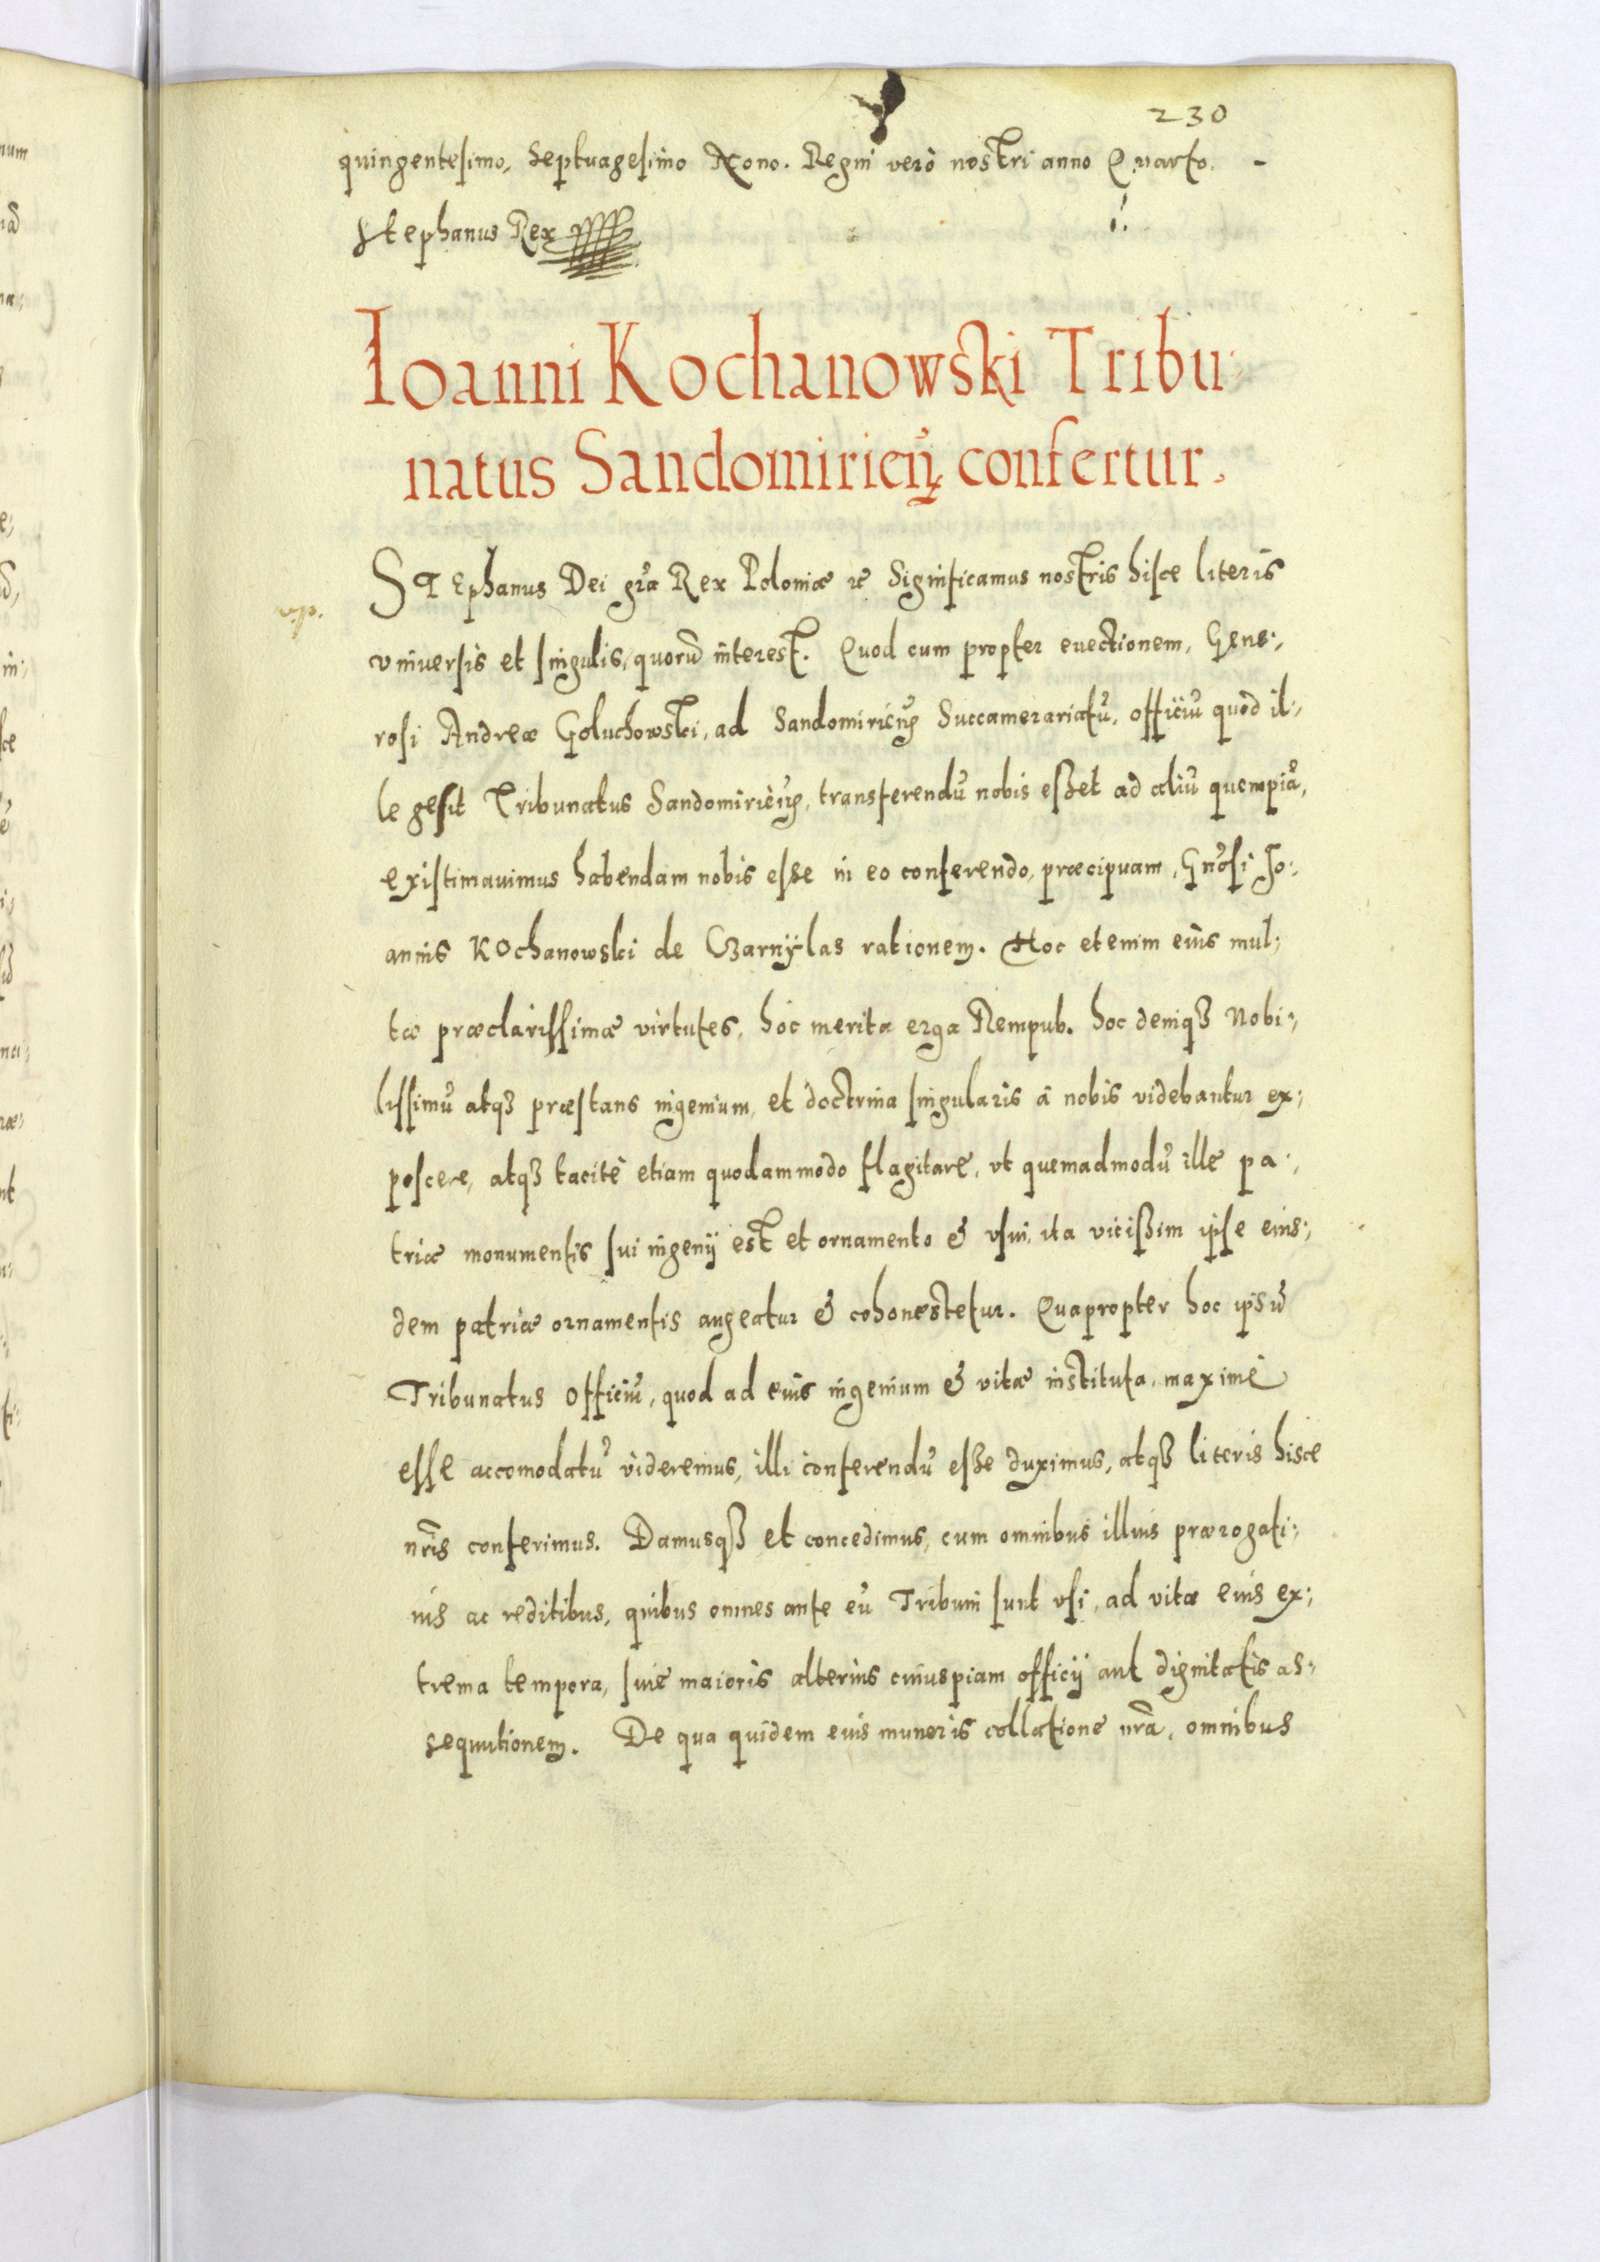 230
quingentesimo, Septuagesimo Nono. Regni verò nostri anno Quarto. -
Stephanus Rex
Ioanni Kochanowski Tribu-
natus Sandomirieñ confertur.
STEphanus Dei grã Rex Poloniæ &c Significamus nostris hisce literis
vniuersis et singulis, quorũ interest. Quod cum propter euectionem, Gene-
rosi Andreæ Goluchowski, ad Sandomirieñ Succamerariatũ, officiũ quod il-
le gesit Tribunatus Sandomirieñ, transferendũ nobis esset ad aliũ quempiã,
existimauimus habendam nobis esse in eo conferendo, præcipuam, Gnõsi Jo-
annis Kochanowski de Czarnÿlas rationem. Hoc etenim eius mul-
tæ præclarissimæ virtutes, hoc merita erga Rempub. hoc deniqȝ Nobi-
lissimũ atqȝ præstans ingenium, et doctrina singularis à nobis videbantur ex-
poscere, atqȝ tacitè etiam quodammodo flagitare, vt quemadmodũ ille pa-
triæ monumentis sui ingenÿ est et ornamento & vsui, ita vicissim ipse eius-
dem patriæ ornamentis augeatur & cohonestetur. Quapropter hoc ipsũ
Tribunatus Officiũ, quod ad eius ingenium & vitæ instituta, maximè
esse accomodatũ videremus, illi conferendũ esse duximus, atqȝ literis hisce
nr̃is conferimus. Damusqȝ et concedimus, cum omnibus illius prærogati-
uis ac reditibus, quibus omnes ante eũ Tribuni sunt vsi, ad vitæ eius ex-
trema tempora, siue maioris alterius cuiuspiam officÿ aut dignitatis as-
sequutionem. De qua quidem eius muneris collatione nr̃a, omnibus